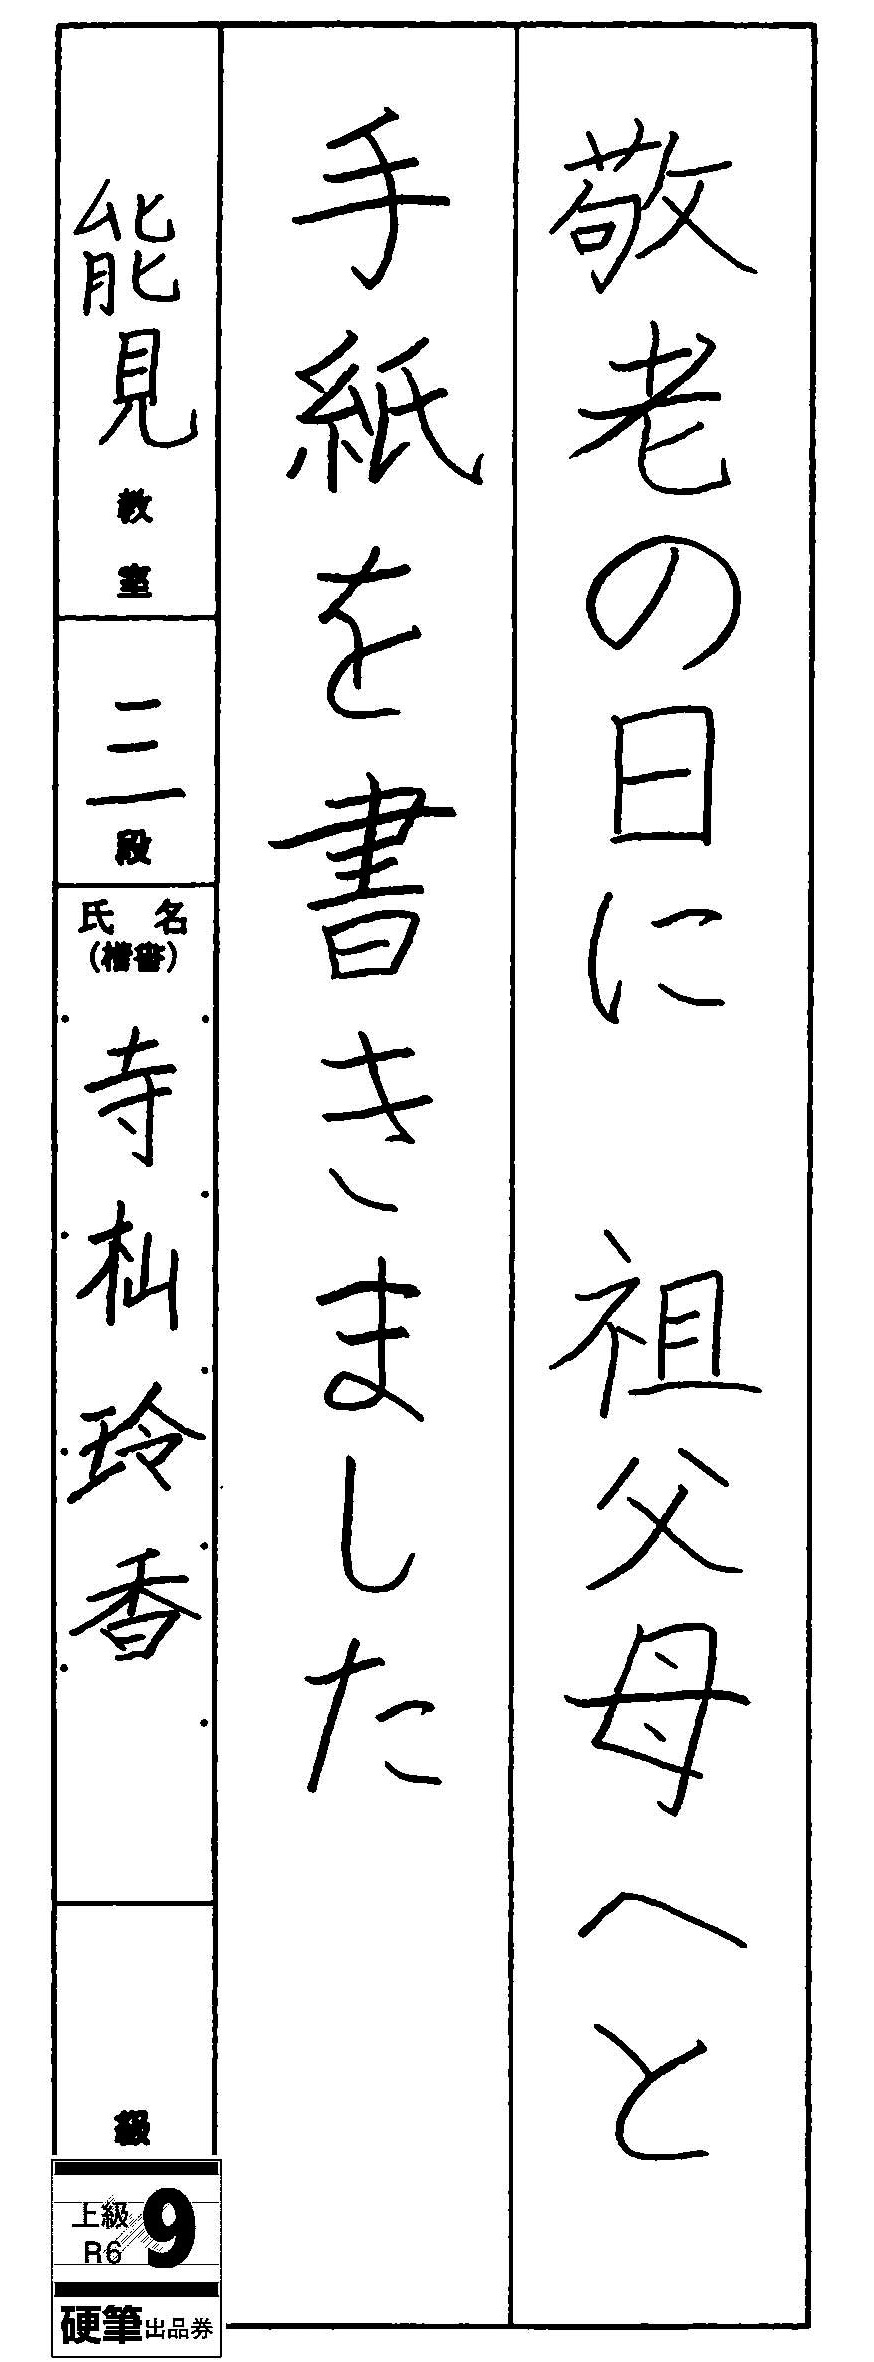 敬老の日に　祖父母へと
手紙を書きました
能見教室
三段
氏名
(楷書)
寺杣玲香
級
上級
R6
9
硬筆出品券